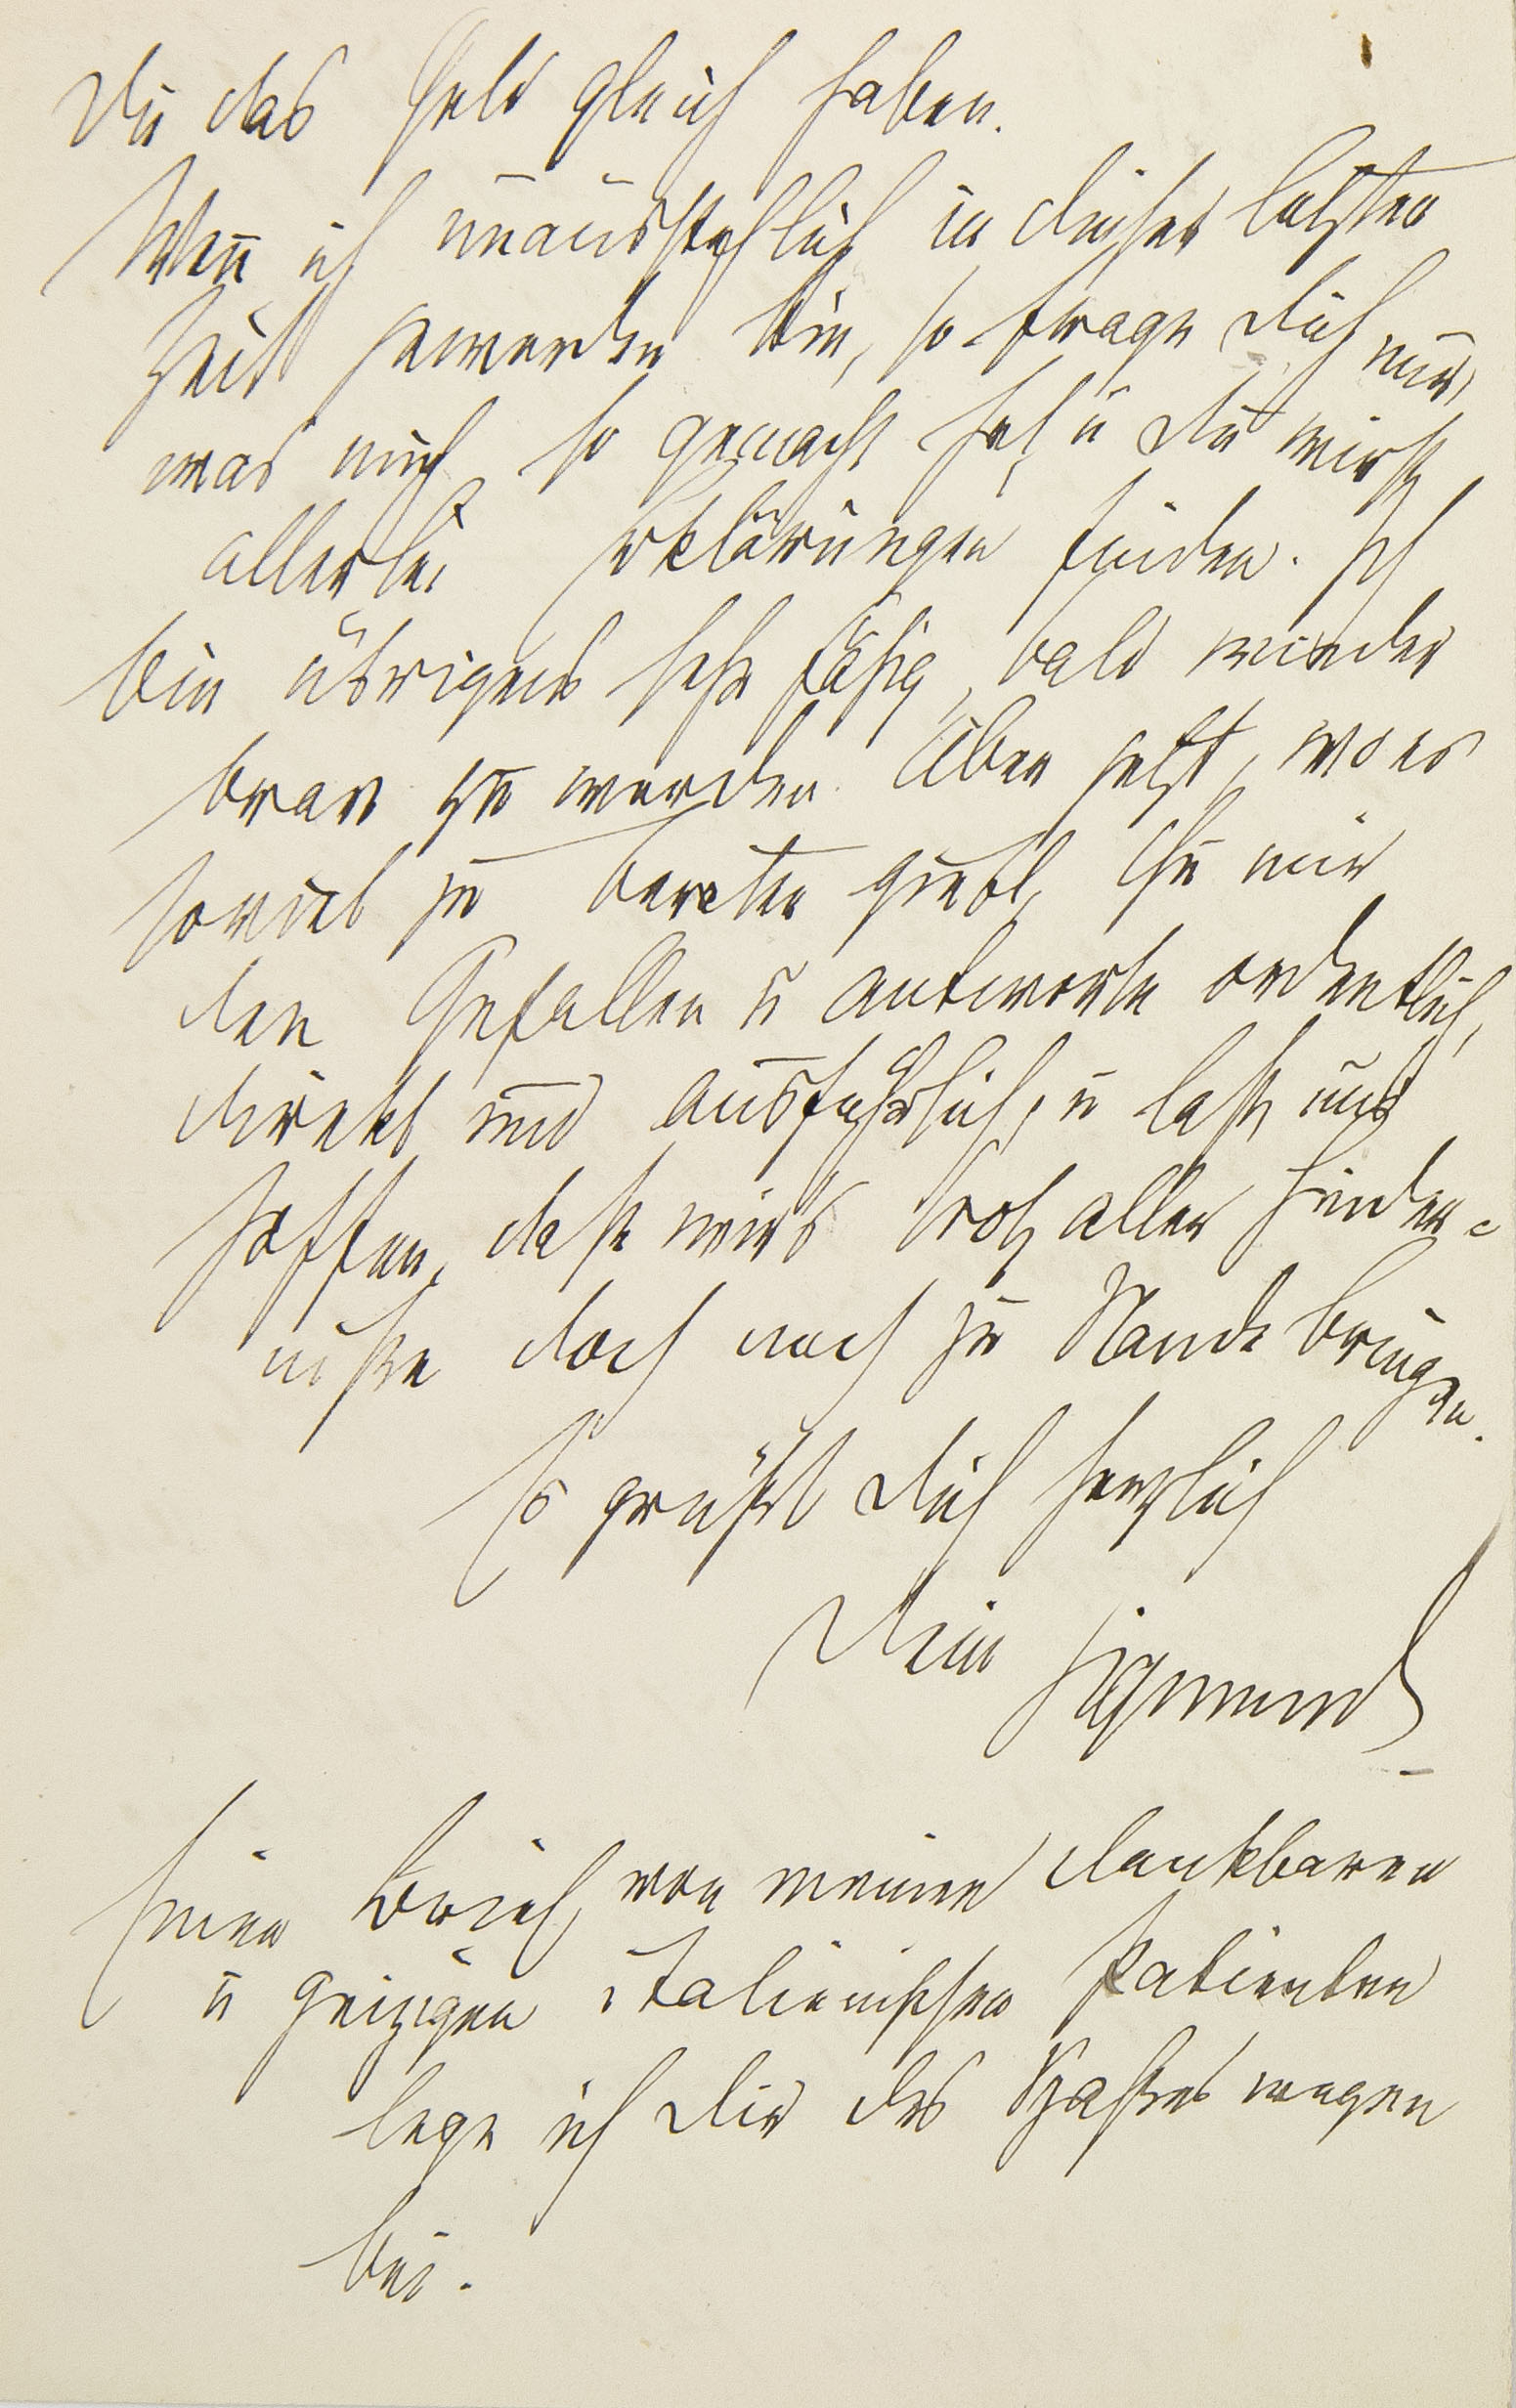 Du das Geld gleich haben.
Wenn ich unausstehlich in dieser letzten
Zeit geworden bin, so frage Dich nur,
was mich so gemacht hat u Du wirst
allerlei Erklärungen finden. Ich
bin übrigens sehr fähig, bald wieder
brav zu werden. Aber jetzt, wo es
soviel zu beraten giebt, thu mir
den Gefallen u antworte ordentlich,
direkt und ausführlich, u laß uns
hoffen, daß wirs trotz aller Hinder-
niße doch noch zu Stande bringen.
Es grüßt Dich herzlich
Dein Sigmund
Einen Brief von meinen dankbaren
u geizigen italienischen Patienten
lege ich Dir des Spaßes wegen
bei.